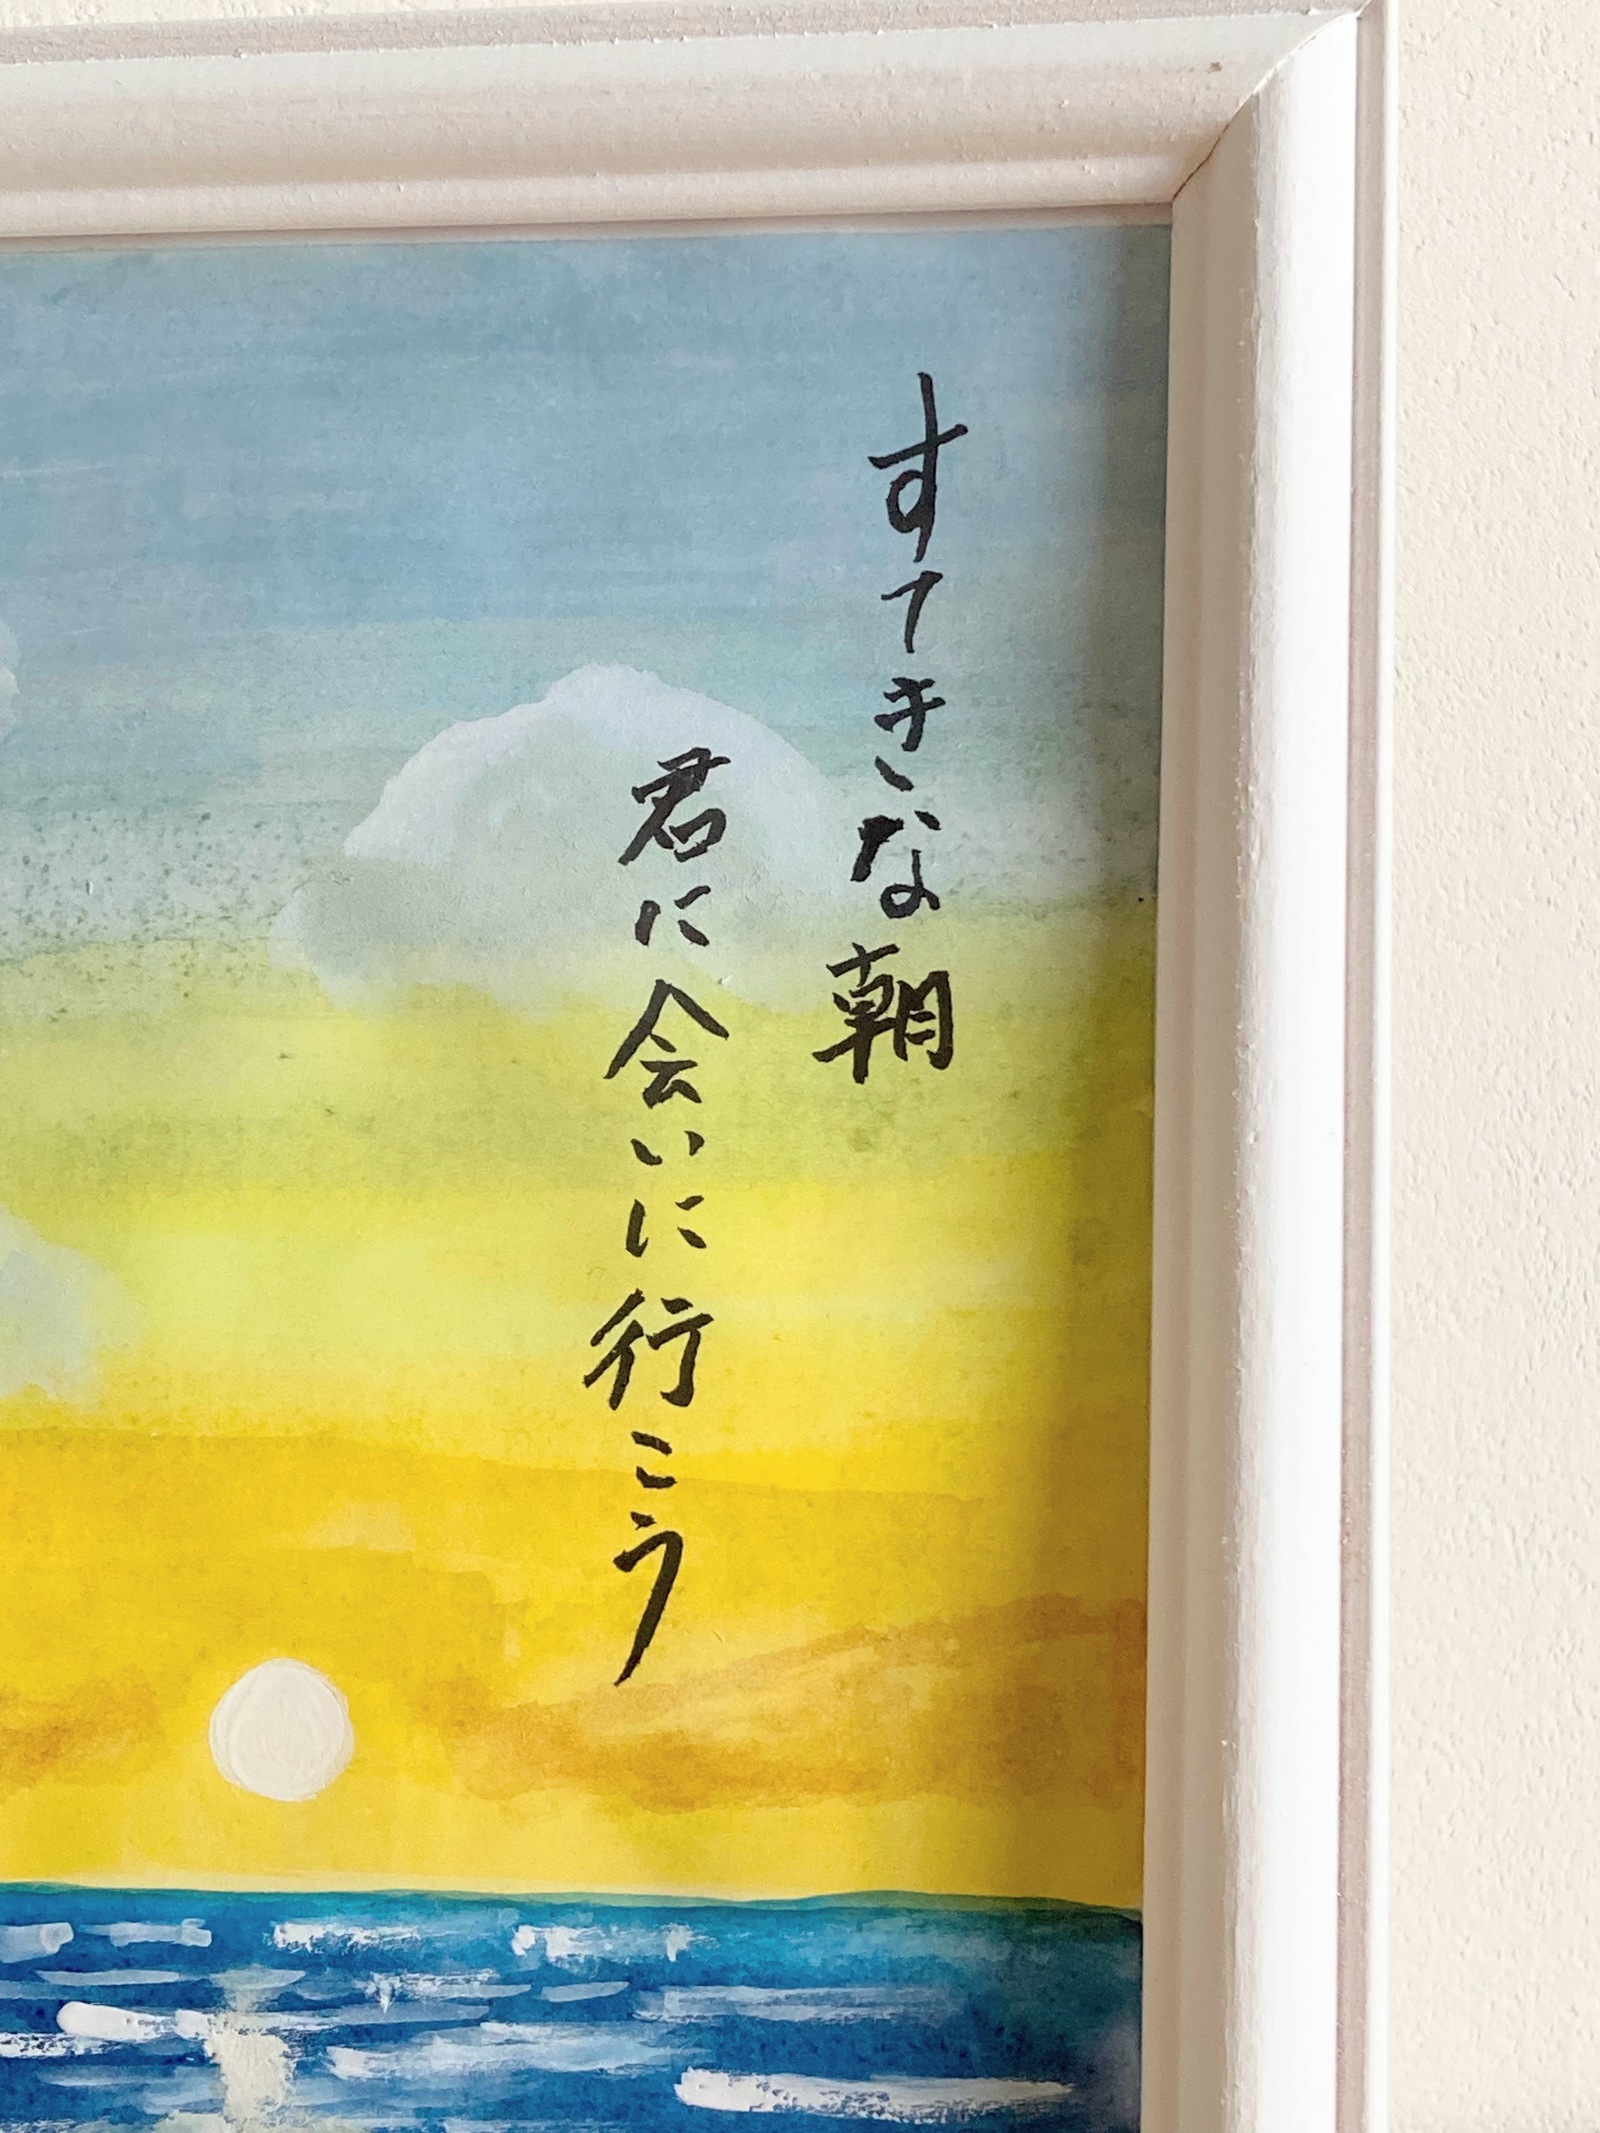 すてきな朝
君に会いに行こう